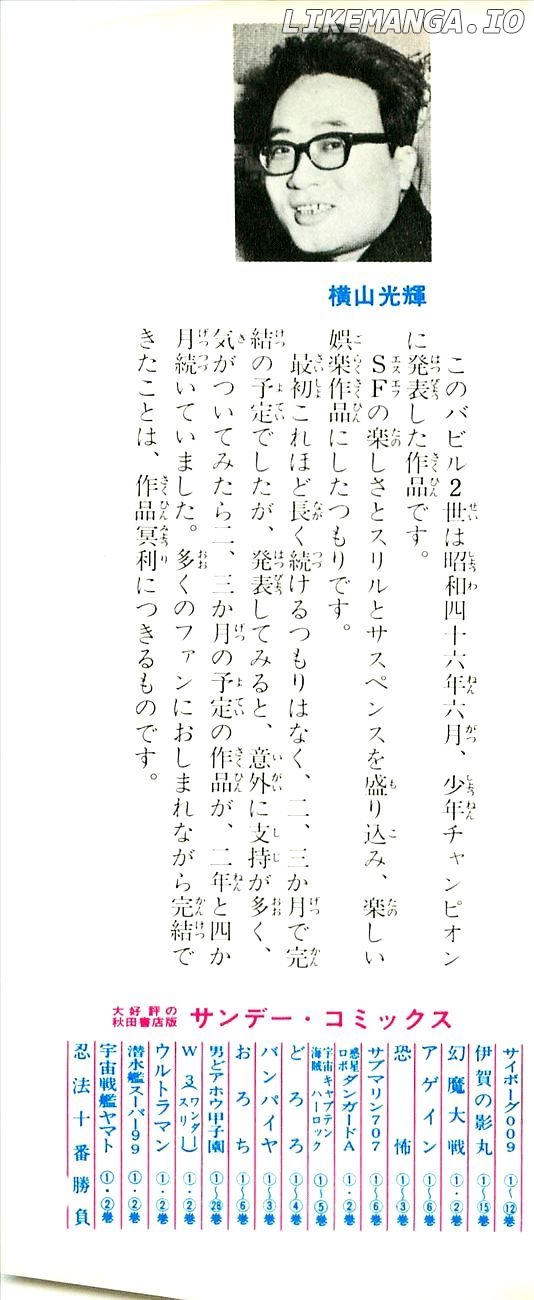 LIKEMANGA.IO
横山光輝
このバビル2世は昭和四十六年六月、少年チャンピオン
に発表した作品です。
SFの楽しさとスリルとサスペンスを盛り込み、楽しい
娯楽作品にしたつもりです。
最初これほど長く続けるつもりはなく、二、三か月で完
結の予定でしたが、発表してみると、意外に支持が多く、
気がついてみたら二、三か月の予定の作品が、二年と四か
月続いていました。多くのファンにおしまれながら完結で
きたことは、作品冥利につきるものです。
大好評の
秋田書店版
サンデー・コミックス
サイボーグ009 ①〜⑫巻
伊賀の影丸 ①〜⑮巻
幻魔大戦 ①・②巻
アゲイン ①〜⑥巻
恐怖 ①〜③巻
サブマリン707 ①〜⑥巻
惑星ロボ ダンガードA ①・②巻
宇宙海賊 キャプテンハーロック ①〜⑤巻
どろろ ①〜④巻
バンパイヤ ①〜③巻
おろち ①〜⑥巻
男どアホウ甲子園 ①〜㉘巻
W3(ワンダースリー) ①・②巻
ウルトラマン ①・②巻
潜水艦スーパー99 ①・②巻
宇宙戦艦ヤマト ①・②巻
忍法十番勝負